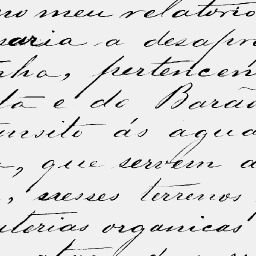 no meu relatorio
saria a desapro
nha, pertencen
ta e do Barão
transito ás agua
, que servem a
, nesses terrenos
terias organicas